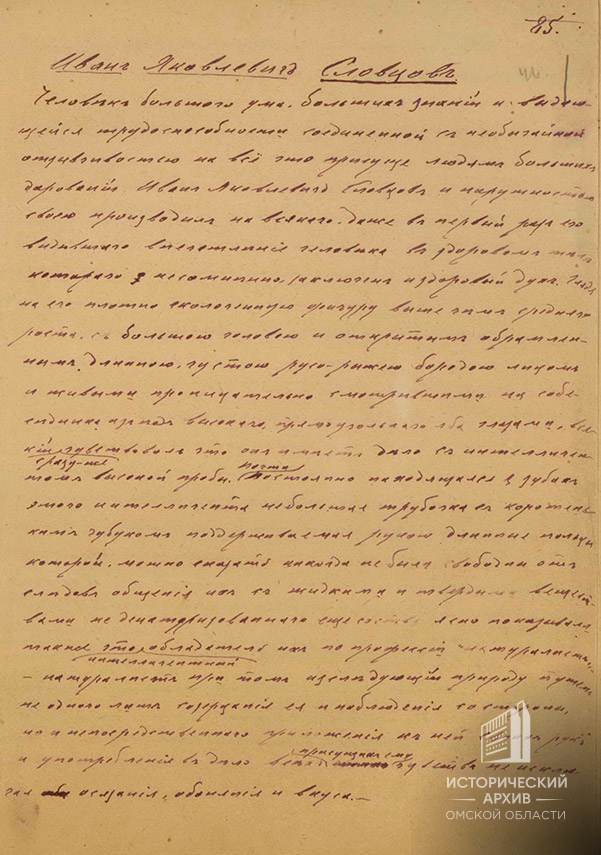 25.
Иванъ Яковлевичъ Словцовъ
Человѣкъ большого ума, большихъ знаній и выдаю-
щейся трудоспособности соединенной съ необычайной
отзывчивостью на всё что присуще людямъ большихъ
дарованій. Иванъ Яковлевичъ Словцовъ и наружностью
своею производилъ на всякаго, даже въ первый разъ его
видѣвшаго впечатлѣніе человѣка въ здоровомъ тѣлѣ
котораго несомнѣнно заключенъ и здоровый духъ. Глядя
на его плотно сколоченную фигуру выше чѣмъ средняго
роста, съ большою головою и открытымъ обрамлен-
нымъ длинною, густою русо-рыжею бородою лицомъ
и живыми проницательно смотрѣвшими на собе-
сѣдника изъ подъ высокаго, прямоугольнаго лба глазами, вся-
кій чувствовалъ что онъ имѣетъ дѣло съ интеллиген-
сразу-же почти
томъ высокой пробы. Постоянно находящаяся въ зубахъ
этого интеллигента небольшая трубочка съ коротень-
кимъ чубукомъ поддерживаемая рукою длинные пальцы
которой, можно сказать никогда не были свободны отъ
слѣдовъ общенія ихъ съ жидкими и твердыми вещест-
вами не денатурализованнаго естества ясно показывали
также что обладатель ихъ по профессіи "натуралистъ",
интеллигентный
— натуралистъ при томъ изслѣдующій природу путемъ
не одного лишь созерцанія ея и наблюденія со стороны,
но и непосредственнаго приложенія къ ней своихъ рукъ
присущихъ ему
и употребленія въ дѣло всѣхъ чувствъ не исклю-
чая осязанія, обонянія и вкуса. —
ИСТОРИЧЕСКИЙ
АРХИВ
ОМСКОЙ ОБЛАСТИ